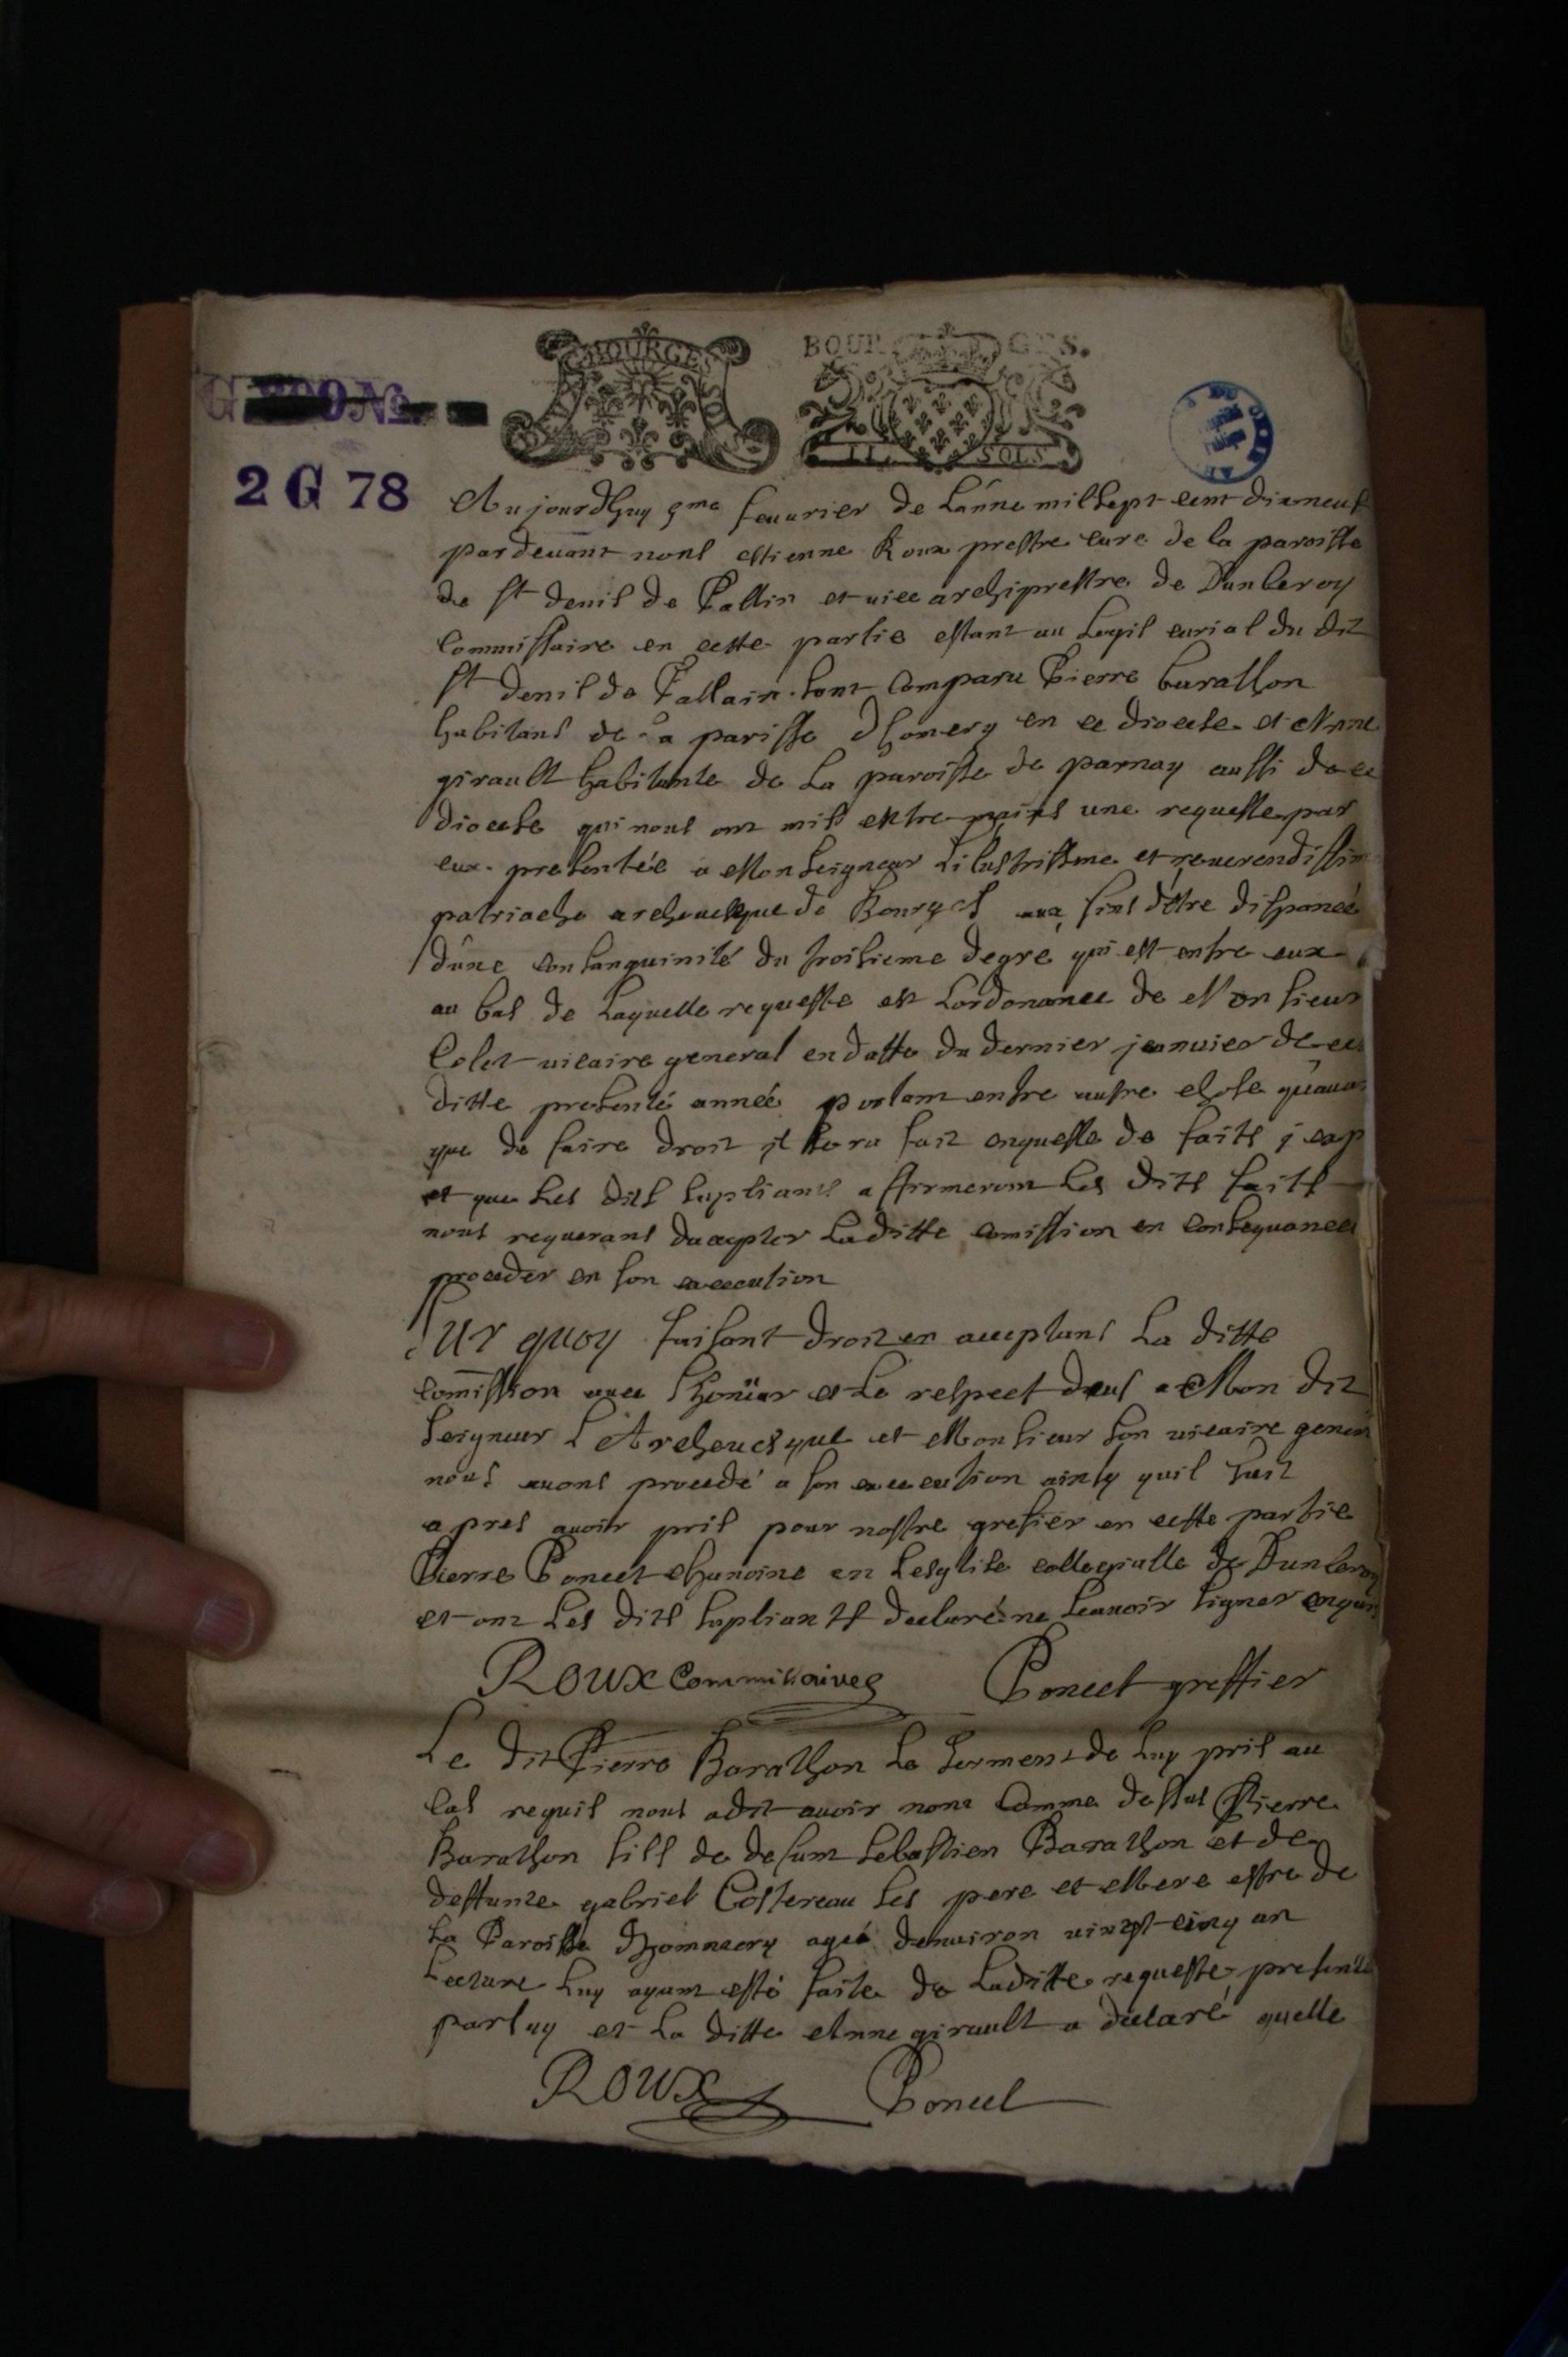 BOURGES
BOUR GES.
II. SOLS
2 G 78
Aujourdhuy 9me feuurier de Lanne mil sept cent dixneuf
pardeuant nous estienne Roux prestre cure de la paroisse
de st denis de Pallin et vice archiprestre de Dunleroy
Commissaire en cette partie estant au Logis curial du dit
st denis de Pallain sont Comparu Pierre barathon
habitans de la parisse dhomery en ce diocese et Anne
girault habitante de La paroisse de parnay aussi de ce
diocese qui nous ont mis entre mains une requeste par
eux presentée a Monseigneur Lilustrissme et reuerendissim
patriache archeuesque de Bourges aux fins dêtre dispancé
dune consanguinité du troisieme degré qui est entre eux
au bas de Laquelle requeste est Lordonance de Monsieur
Colet vicaire general en datte du dernier januier de ce
ditte presente année portant entre autre chose quauan
que de faire droit il sera fait enqueste de faits y exp
et que Les dits suplians affirmeront Les dits faits
nous requerans daccepter Laditte comission en consequance
proceder en son execcution
Sur quoy faisant droit en acceptans La ditte
comission auec Lhonüer et Le respect deus a Mon dit
seigneur LArcheuesque et Monsieur son vicaire gener
nous auons procedé a son execcution ainsy quil suit
apres auoir pris pour nostre grefier en cette partie
Pierre Poncet chanoine en Lesglise collegialle de Dunleroy
et ont Les dits supliants declaré ne scauoir signer enquis
Roux Commissaires Poncet greffier
Le dit Pierre Barathon Le serment de Luy pris au
cas requis nous a dit auoir nom Comme dessus Pierre
Barathon fils de defunt sebastien Barathon et de
deffunte gabriel Costereau ses pere et Mere estre de
La Paroisse dhommery agé denuiron vingt cinq an
Lecture Luy ayant esté faite de Laditte requeste presente
par luy et La ditte Anne girault a declaré quelle
Roux Poncet